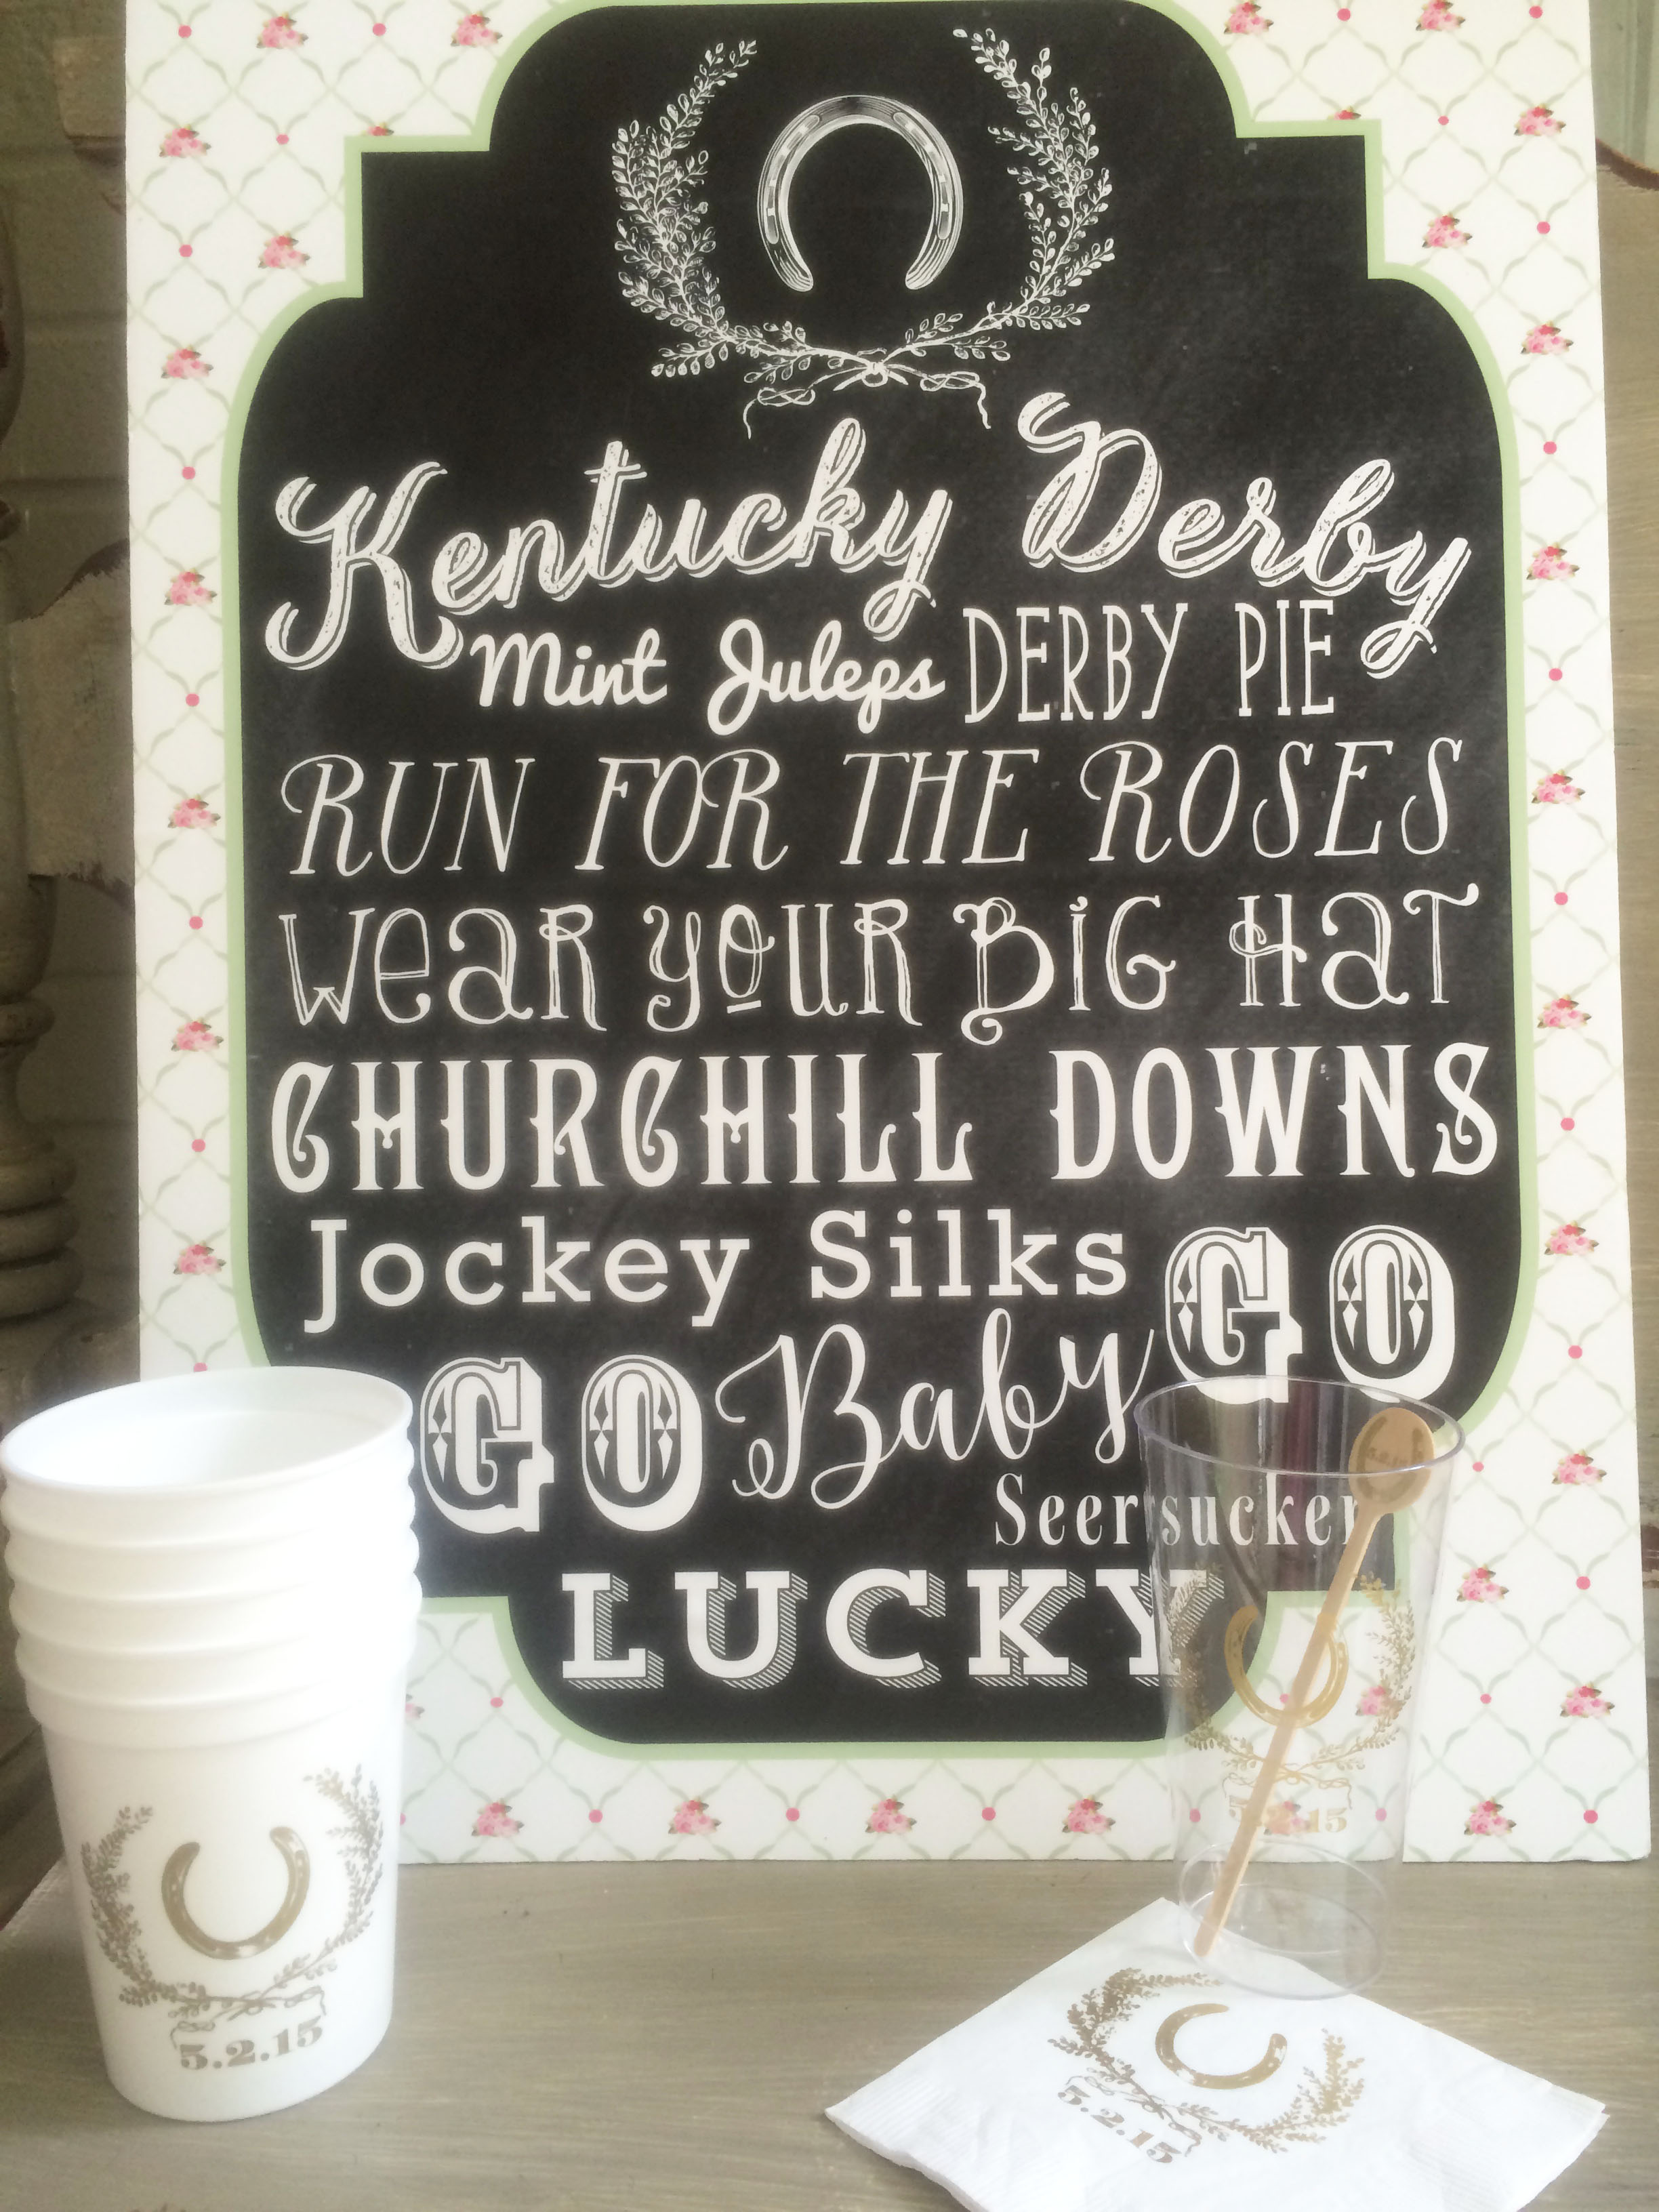 Kentucky Derby
Mint Juleps DERBY PIE
RUN FOR THE ROSES
Wear YOUR BiG HaT
CHURCHILL DOWNS
Jockey Silks GO
GO Baby
Seersucker
LUCKY
5.2.15
5.2.15
5.2.15